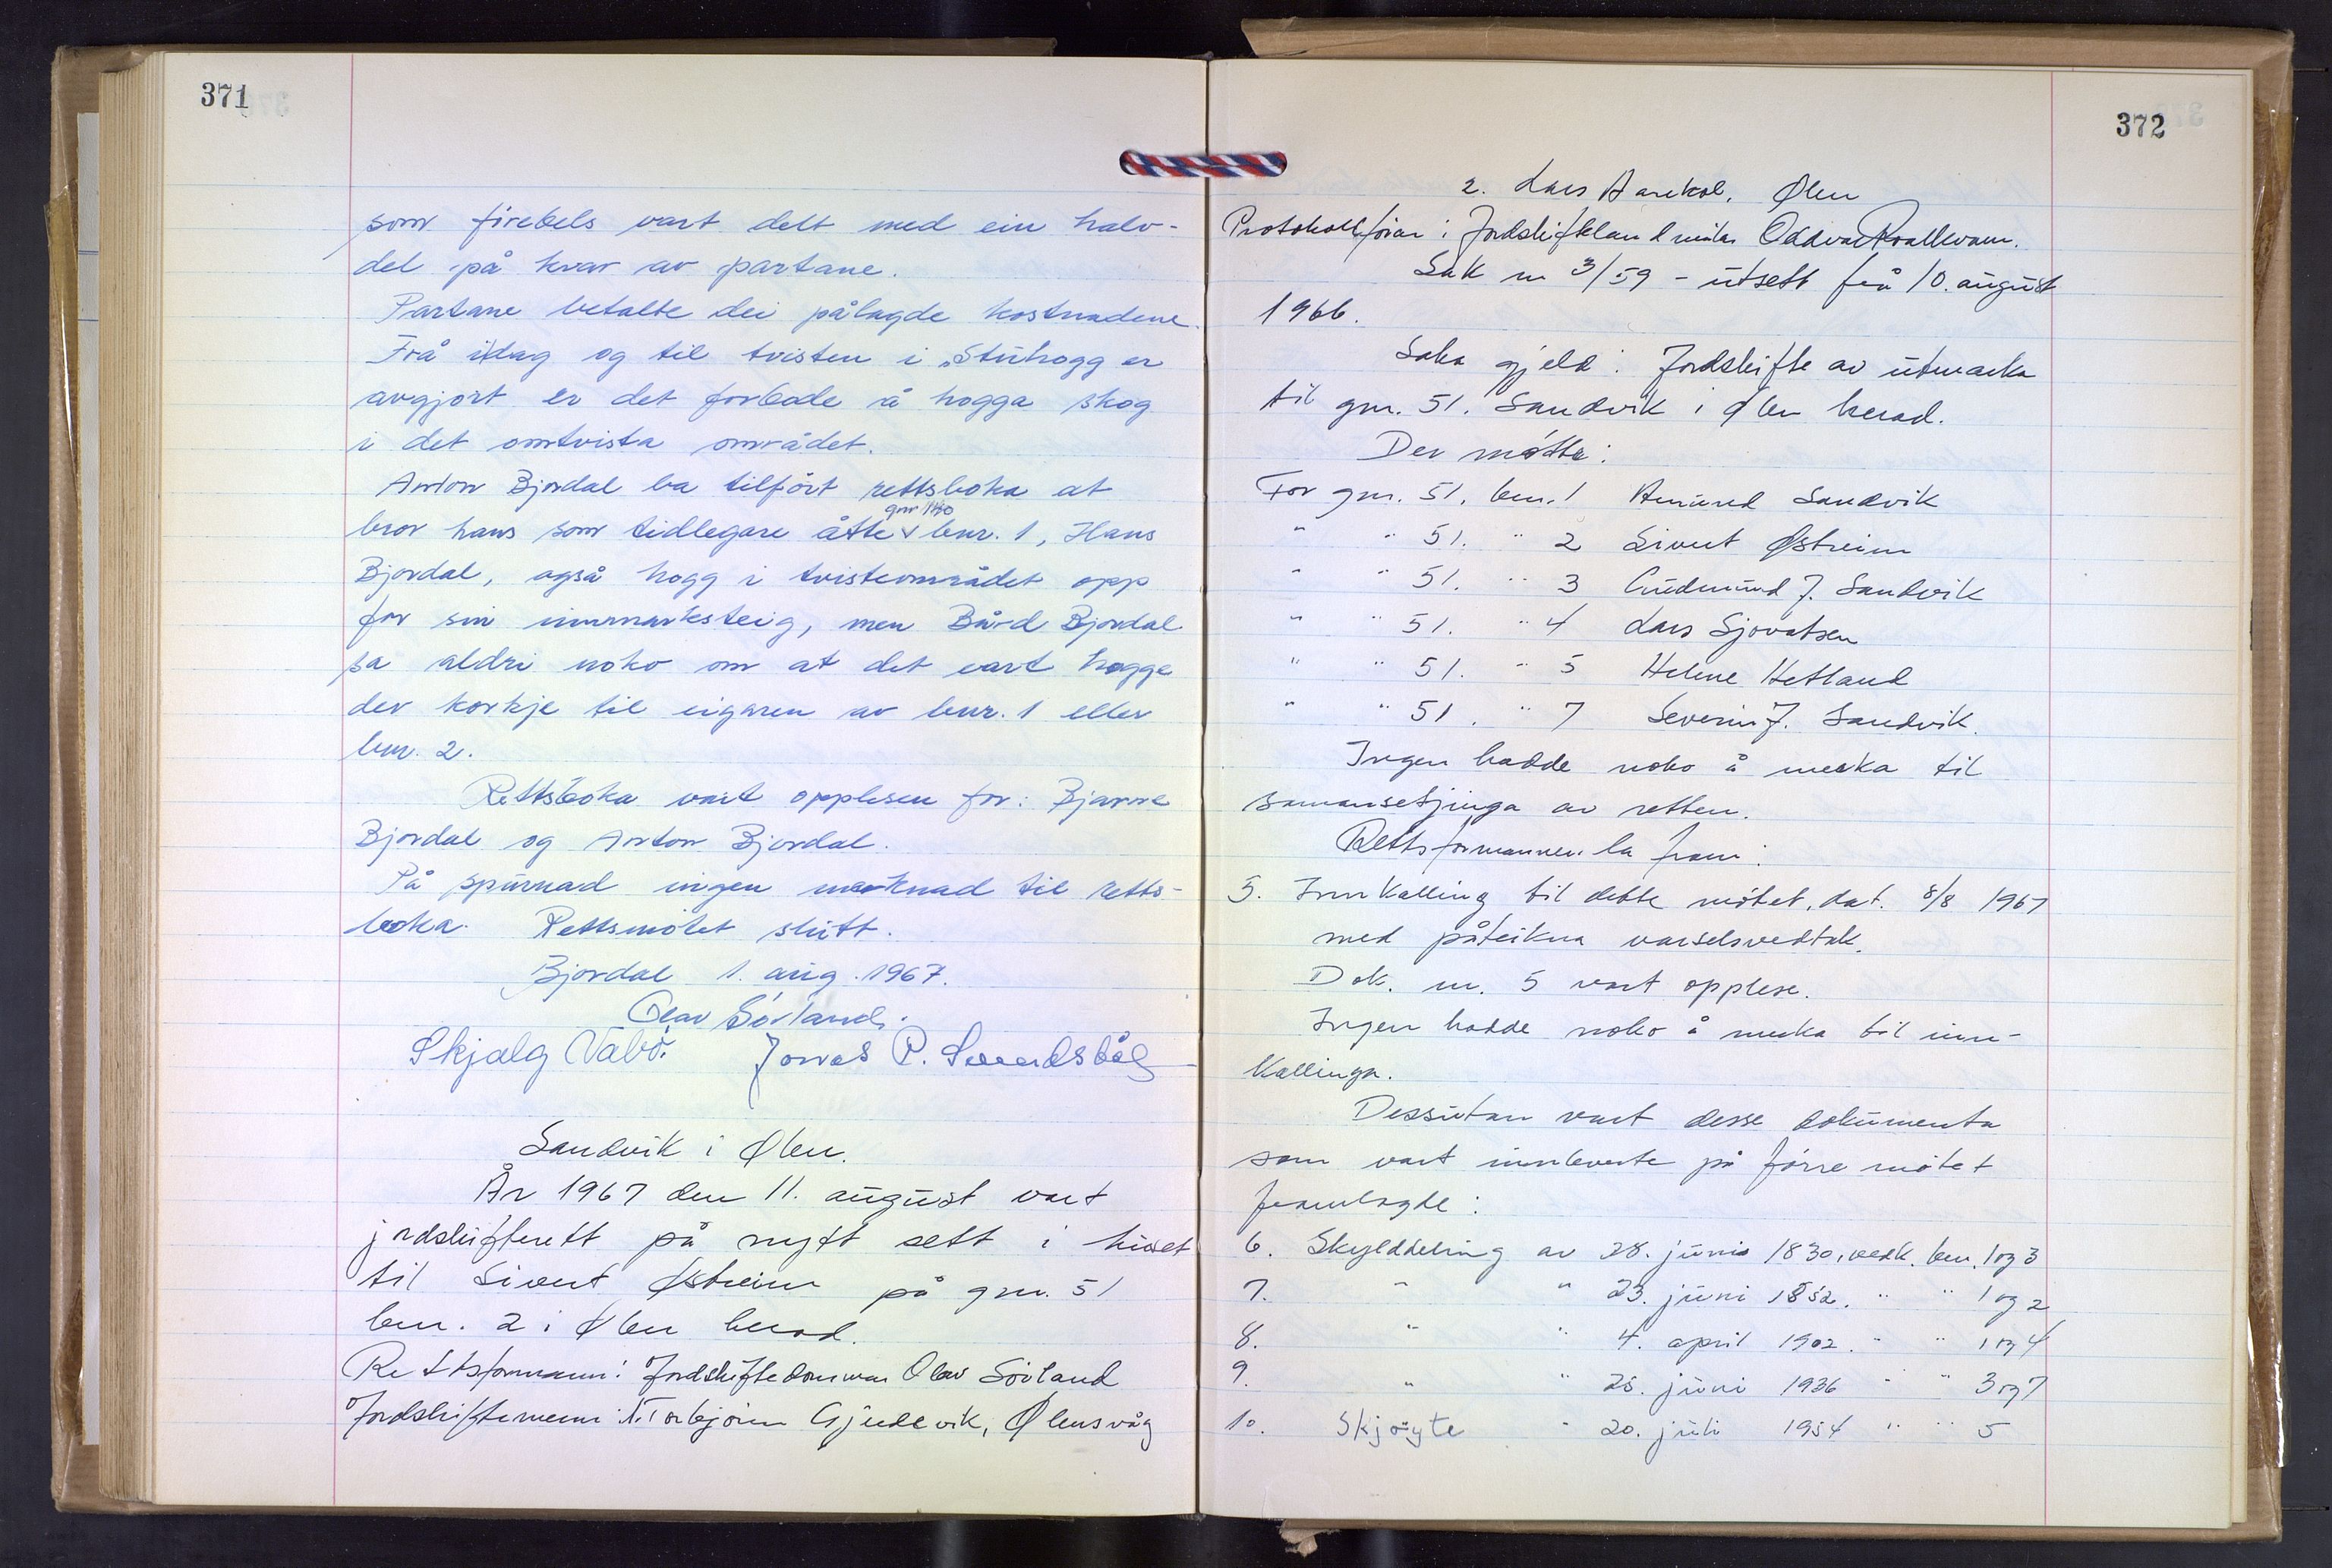 371
som firebels vart delt med ein halv-
del på kvar av partane.
Partane betalte dei pålagde kostnadene.
Frå idag og til tvisten i "Stuhogg er
avgjort er det forbode å hogga skog
i det omtvista området.
Anton Bjordal ba tilført rettsboka at
gnr 140
bror hans som tidlegare åtte v bnr. 1, Hans
Bjordal, også hogg i tvisteområdet opp
for sin innmarksteig, men Bård Bjordal
sa aldri noko om at det vart hogge
der korkje til eigaren av bnr. 1 eller
bnr. 2.
Rettsboka vart opplesen for: Bjarne
Bjordal og Anton Bjordal.
På spurnad ingen merknad til retts-
boka. Rettsmötet slutt.
Bjordal 1. aug. 1967.
Olav Sörland.
Skjalg Vabö. Jonas P.
Sandvik i Ølen.
År 1967 den 11. august vart
jordskifterett på nytt sett i huset
til Sivert Østreim på gnr. 51
bnr. 2 i Ølen herad.
Rettsformann: Jordskiftedommar Olav Sörland
Jordskiftemenn: 1. Torbjörn Gjerdevik, Ølensvåg
372
2. Lars Aarekol, Ølen
Protokollförar: Jordskiftelandmålar Oddvar
Sak nr 3/59 - utsett frå 10. august
1966.
Saka gjeld: Jordskifte av utmarka
til gnr. 51. Sandvik i Ølen herad.
Der mötte:
For gnr. 51. bnr. 1 Amund Sandvik
" " 51. " 2 Sivert Østreim
" " 51. " 3 Gudmund J. Sandvik
" " 51. " 4 Lars Sjovatsen
" " 51. " 5 Helene Hetland
" " 51. " 7 Severin J. Sandvik.
Ingen hadde noko å merka til
samansetjinga av retten.
Rettsformannen la fram:
5. Innkalling til dette mötet, dat. 8/8 1967
med påteikna varselsvedtak.
Dok. nr. 5 vart opplese.
Ingen hadde noko å merka til inn-
kallinga.
Dessutan vart desse dokumenta
som vart innleverte på förre mötet
framlagde:
6. Skylddeling av 28. juni 1830, vedk. bnr. 1 og 3
7. " " 23. juni 1852. " " 1 og 2
8. " " 4. april 1902. " " 1 og 4
9. " " 25. juni 1936 " " 3 og 7
10. Skjöyte " 20. juli 1954 " " 5